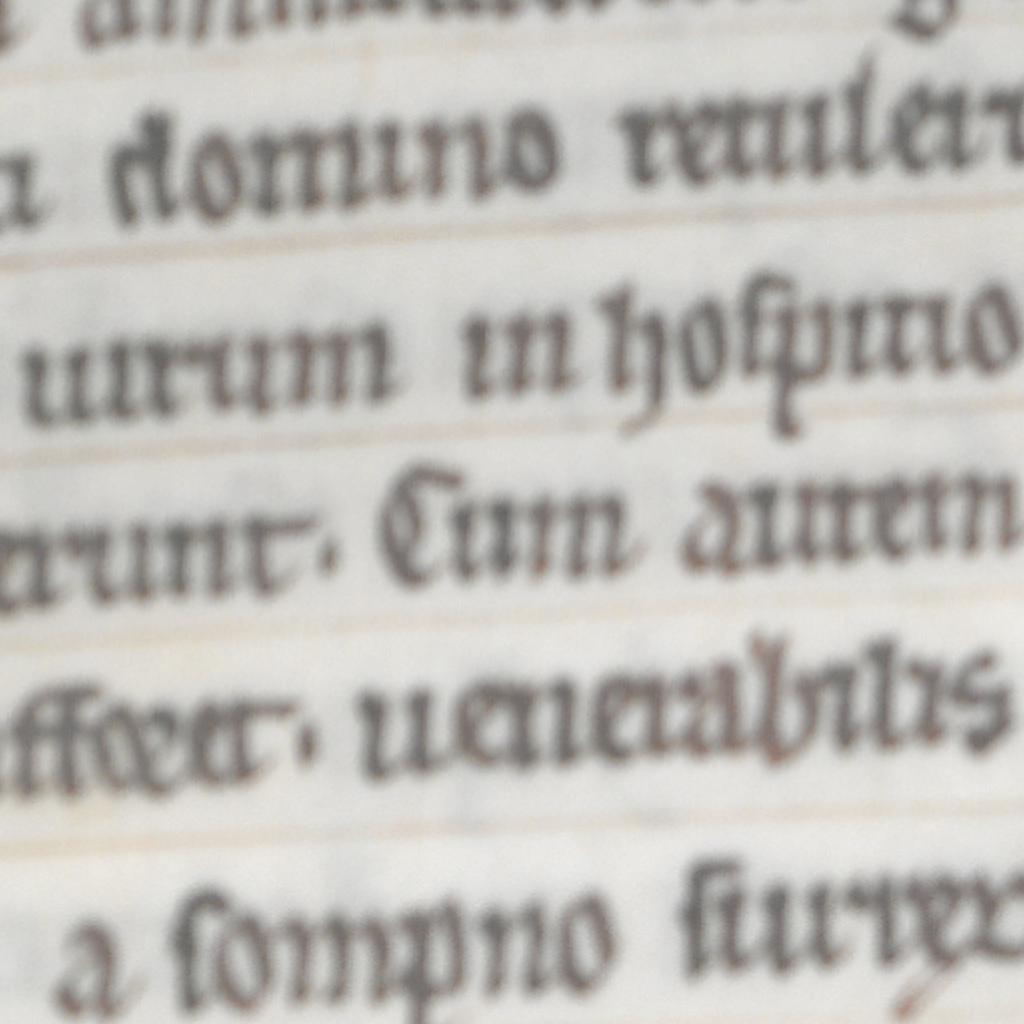 a domino reuelar
uirum in hospitio
erunt. Cum autem
uenerabilis
a sompno surrex